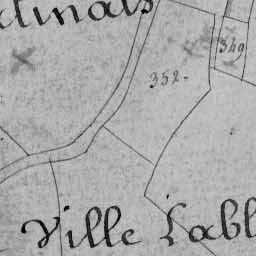 dinals
349
352.
Ville Labl